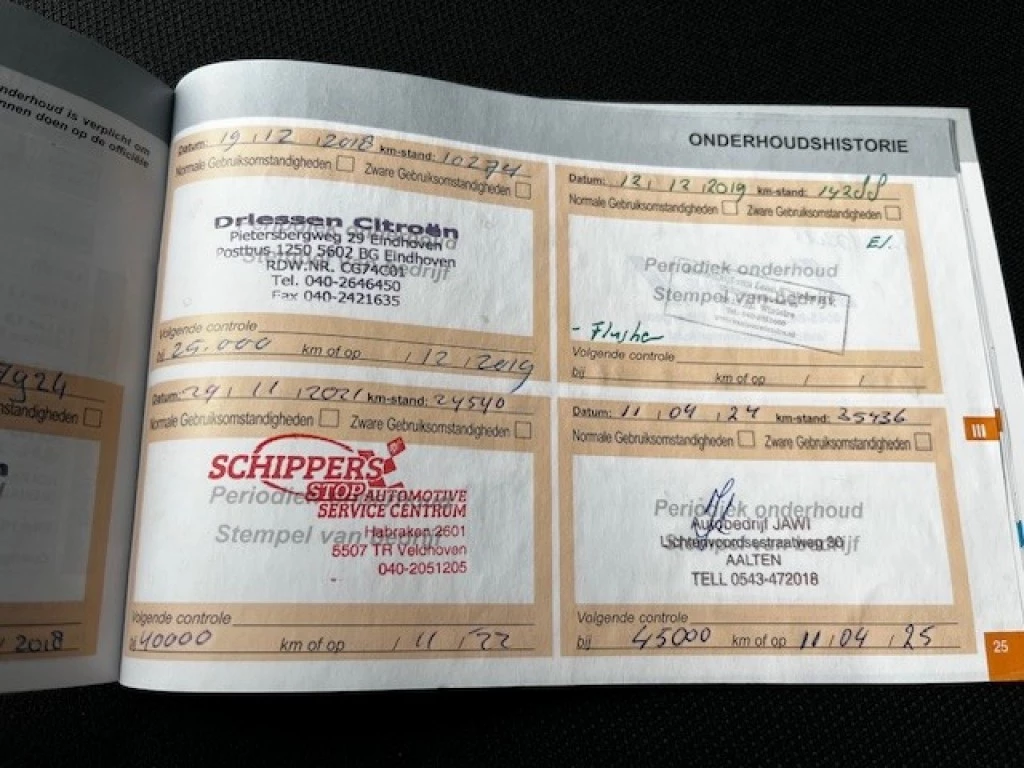 nderhoud is verplicht om
nnen doen op de officiële
7924
standigheden
2018
ONDERHOUDSHISTORIE
Datum: 19 / 12 / 2018 km-stand: 10274
Normale Gebruiksomstandigheden Zware Gebruiksomstandigheden
Driessen Citroën
Pietersbergweg 29 Eindhoven
Postbus 1250 5602 BG Eindhoven
RDW.NR. CG74C01
Tel. 040-2646450
Fax 040-2421635
Volgende controle
bij 25.000 km of op / 12 / 2019
Datum: 12 / 12 / 2019 km-stand: 14288
Normale Gebruiksomstandigheden Zware Gebruiksomstandigheden
Periodiek onderhoud
Stempel van bedrijf
Volgende controle
bij km of op / /
Datum: 29 / 11 / 2021 km-stand: 24540
Normale Gebruiksomstandigheden Zware Gebruiksomstandigheden
SCHIPPERS
STOP AUTOMOTIVE
SERVICE CENTRUM
Periodiek onderhoud
Stempel van bedrijf
Habraken 2601
5507 TR Veldhoven
040-2051205
Volgende controle
bij 40000 km of op / 11 / 22
Datum: 11 / 04 / 24 km-stand: 35436
Normale Gebruiksomstandigheden Zware Gebruiksomstandigheden
Periodiek onderhoud
Stempel van bedrijf
Autobedrijf JAWI
Lichtenvoordsestraatweg 30
AALTEN
TELL 0543-472018
Volgende controle
bij 45000 km of op 11 / 04 / 25
III
25